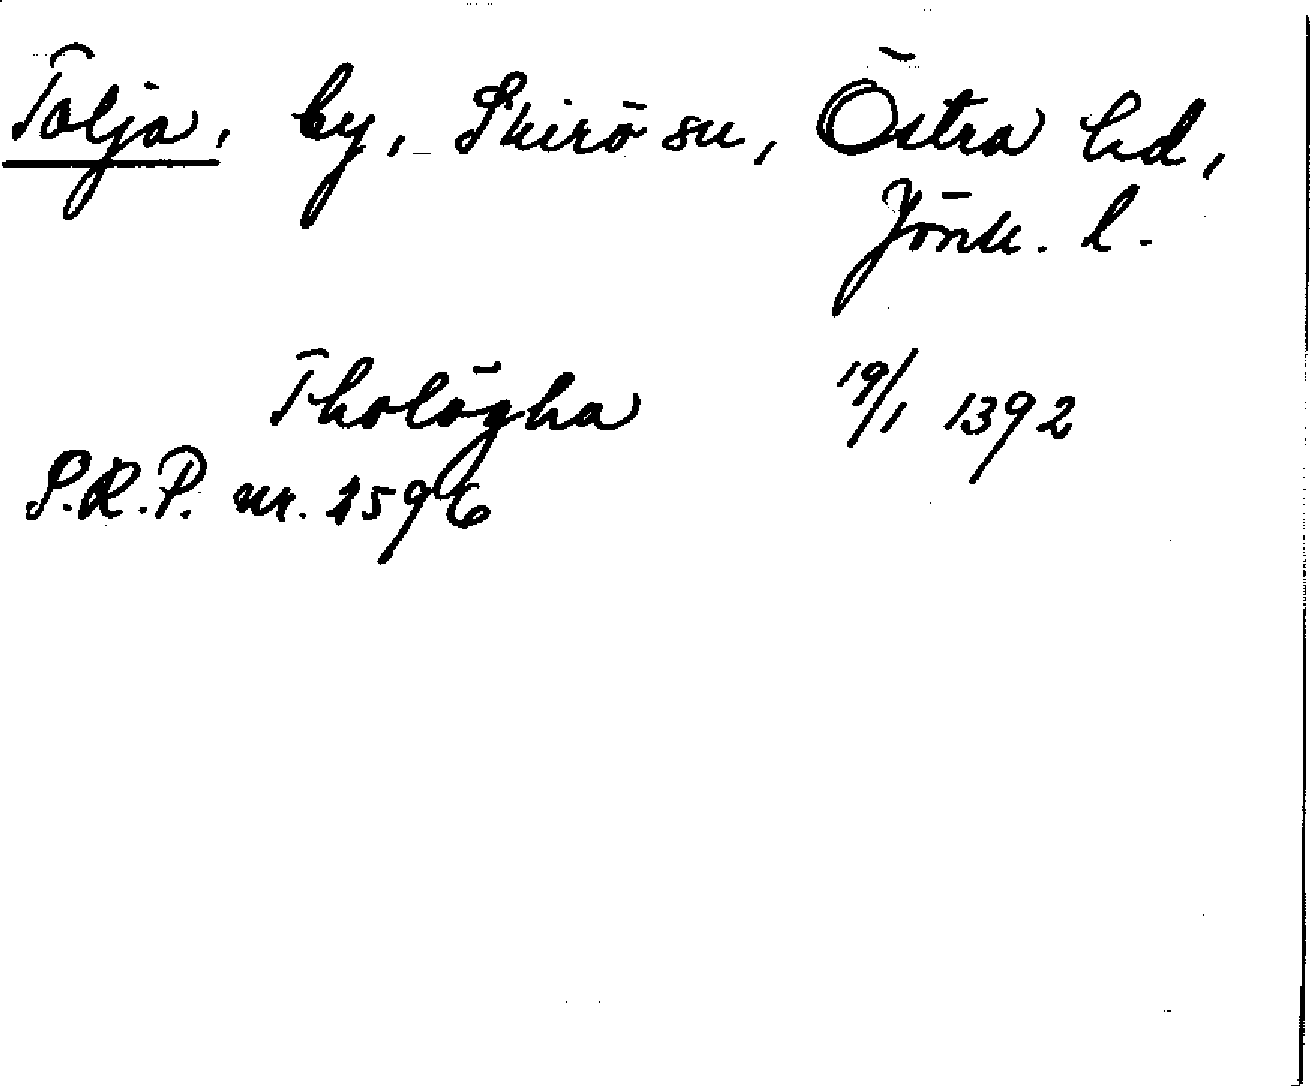 Tolja, by, Skirö sn, Östra hd,
Jönk. l.
Tholögha 19/1 1392
S.R.P. nr. 2596